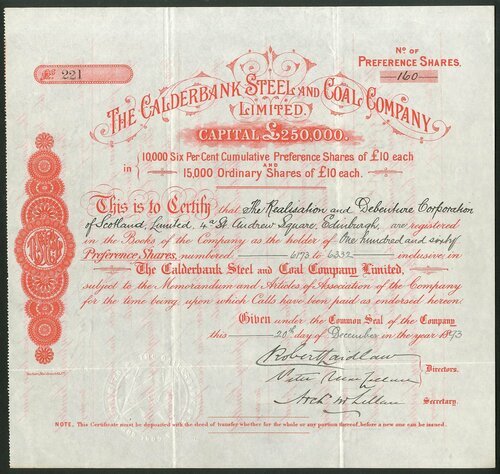 Nº OF
PREFERENCE SHARES.
160
Nº 221
THE CALDERBANK STEEL AND COAL COMPANY
LIMITED.
CAPITAL £250,000.
in 10,000 Six Per Cent Cumulative Preference Shares of £10 each
AND
15,000 Ordinary Shares of £10 each.
This is to Certify that The Realisation and Debenture Corporation
of Scotland, Limited, 4a St Andrew Square, Edinburgh, are registered
in the Books of the Company as the holder of One hundred and sixty
Preference Shares, numbered 6173 to 6332 inclusive, in
The Calderbank Steel and Coal Company Limited,
subject to the Memorandum and Articles of Association of the Company
for the time being, upon which Calls have been paid as endorsed hereon.
Given under the Common Seal of the Company
this 20th day of December in the year 1893
Robert Wardlaw
Directors.
Arch McLellan
Secretary.
NOTE. This Certificate must be deposited with the deed of transfer whether for the whole or any portion thereof, before a new one can be issued.